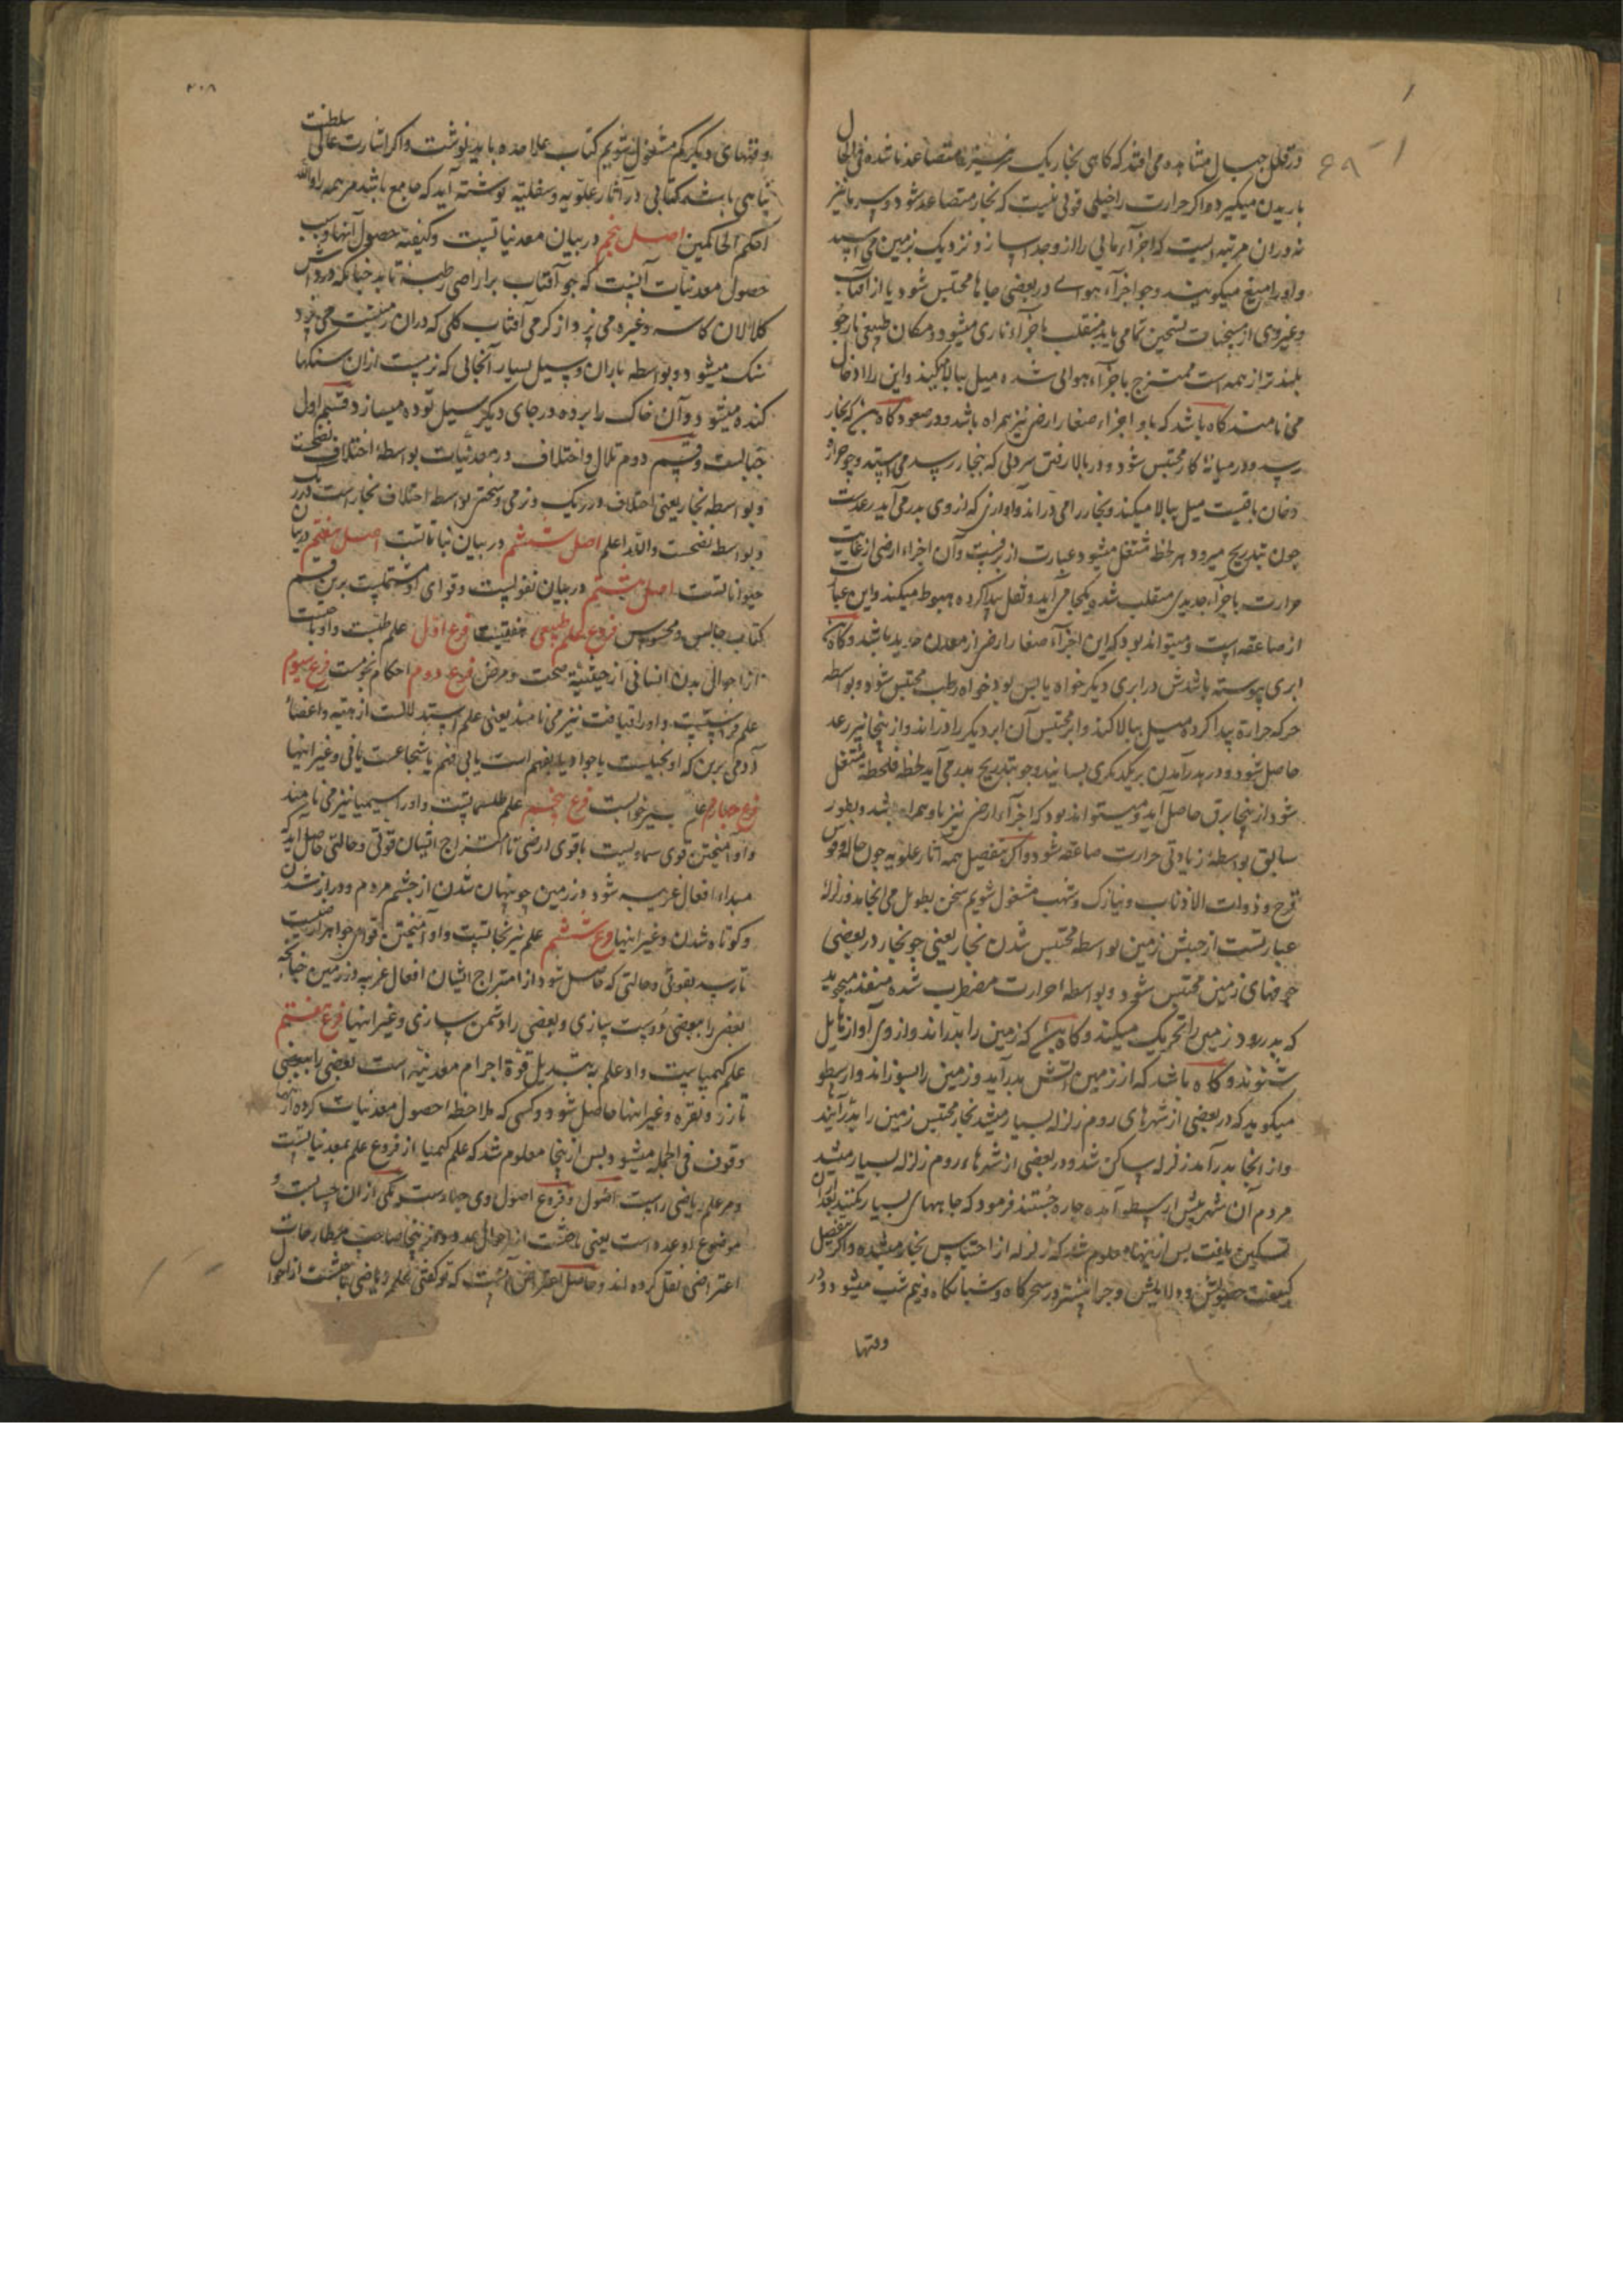 در قلل جبال مشاهده می افتد که کاهی بخار یک متصاعد ناشده فی الحال
باریدن میکیرد و اکر حرارت را خیلی قوتی نیست که بخار متصاعد شود و سرما نیز
نه در ان مرتبه است که اجزآء مائی را از وجد اسازد نزدیک زمین می استد
و او را میغ میکویند و جو اجزآء هوائے در بعضی جاها محتبس شود یا از آفتاب
و غیر وی از مسخنات تسخین تمامی یابد منقلب باجزآء ناری میشود و مکان طبیعی نار جو
بلندتر از همه است ممتزج باجزآء هوائی شده میل ببالا میکند و این را ادخان
می نامند کاه باشد که با و اجزاء صغار ارضی نیز همراه باشد و در صعود کاه که بخار
رسد و در میانۀ کار محتبس شود و در بالا رفتن سردی که ببخار رسد می استد و جو اجزاء
دخان باقیست میل ببالا میکند و بخار را می دراند و اوازی که از وی بدر می آید رعدست
جون بتدریج میرود هر لحظ مشتعل میشود عبارت از برقست و آن اجزاء ارضی از غایت
حرارت باجزآء حدیدی منقلب شده یکجا می آید و ثقل پیدا کرده هبوط میکند و این عبارت
از صاعقه است و میتواند بود که این اجزآء صغار ارضی از معدن حدید باشد و کاه
ابری پیوسته باشدش در ابری دیکر خواه یابس بود خواه رطب محتبس شود و بواسطه
حرکه حرارة پیدا کرده میل ببالا کند و ابر محتبس آن ابر دیکر را دراند و از ینجا نیز رعد
حاصل شود و در بدر آمدن بر یکدیکر بسایند و جو بتدریج بدر می آید لحظه فلحظه مشتعل
شود از ینجا برق حاصل آید و میتواند بود که اجزآء ارضی نیز با و همراه باشد و بطور
سابق بواسطۀ زیادتی حرارت صاعقه شود و اکر بتفصیل همه آثار علویه جون هاله و قوس
قزح و ذوات الاذناب و نیازک و شهب مشغول شویم سخن بطویل می انجامد و زلزلۀ
عبارتست از جنبش زمین بواسطه محتبس شدن بخار یعنی جو بخار در بعضی
جوفهای زمین محتبس شود و بواسطه حرارت مضطرب شده منفذ میجوید
که بدر رود زمین را تحریک میکند و کاه باشد که زمین را بدراند و از وی آواز هایل
شنوند و کاه باشد که از زمین اتش بدر آید و زمین را بسوزاند و ارسطو
میکوید که در بعضی از شهرهای روم زلزله بسیار میشد بخار محتبس زمین را بدر آیند
و از انجا بدر آمد زلزله ساکن شد و در بعضی از شهرهاء روم زلزله بسیار میشد
مردم آن شهر پیش ارسطو آمده چاره جستند فرمود که جاهها بسیار بکنید بعد از آن
تسکین یافت بس از ینها معلوم شد که زلزله از احتباس بخار میشده و اکر بتفصیل
کیفیت حصولش و دلایلش و جرا بیشتر در سحرکاه و شبانکاه و نیم شب میشود و در
وقتها
۲۰۸
وقتهای دیکر کم مشغول شویم کتاب علاحده باید نوشت و اکر اشارت عالی سلطنت
پناهی باشد کتابی در آثار علویه و سفلیه نوشته آید که جامع باشد مر همه را والله
احکم الحاکمین اصل پنجم در بیان معدنیاتست و کیفیة حصول آنها و سبب
حصول معدنیات آنست که جو آفتاب بر اراضی رطبۀ تابد جنانکه در داش
کلالان کاسه و غیره می پزد از کرمی آفتاب کلی که دران زمینیست می پزد
سنک میشود و بواسطه باران و سیل بسیار آنجائی که نرمست ازان سنکها
کنده میشود و آن خاک را برده در جای دیکر سیل توده میسازد قسم اول
جبالست و قسم دوم تلال و اختلاف در معدنیات بواسطۀ اختلاف نضجست
و بواسطه بخار یعنی اختلاف در رنک و نرمی و سختی بواسطه اختلاف بخارست
و بواسطه نضجست والله اعلم اصل ششم در بیان نباتاتست اصل هفتم در بیان
حیواناتست اصل هشتم در بیان نفوسست و قوای او مشتملست برین قسم
کتاب حاس و محسوس فروع علم طبیعی هفتست فرع اول علم طبست و او باحثست
از احوال بدن انسانی از حیثیة صحت و مرض فرع دوم احکام نجومست فرع سیوم
علم فراستست و او را قیافت نیز می نامند یعنی علم استدلالست از هیة و اعضاء
آدمی برین که او بخیلست یا جواد یا بفهم است یا بی فهم یا شجاعت یافی و غیر اینها
فرع چهارم علم تعبیر خوابست فرع پنجم علم طلسماتست و او را سیمیا نیز می نامند
و او آمیختن قوی سماویست با قوی ارضی تا از امتزاج ایشان قوتی و حالتی حاصل آید
مبداء افعال غریبه شود در زمین جو پنهان شدن از جشم مردم و دراز شدن
و کوتاه شدن و غیر اینها فرع ششم علم نیرنجاتست و او آمیختن قوای جواهر ارضیست
تا رسد بقوتی و حالتی که حاصل شود از امتزاج ایشان افعال غریبه در زمین جنانچه
بعضی را ببعضی دوست سازی و بعضی را دشمن سازی و غیر اینها فرع هفتم
علم کیمیاست و او علم بتبدیل قوة اجرام معدنیه است بعضی را ببعضی
تا زر و نقره و غیر اینها حاصل شود و کسی که ملاحظه حصول معدنیات کرده از اینها
وقوف فی الجمله میشود بس از ینجا معلوم شد که علم کیمیا از فروع علم بمعدنیاتست
و مر علم ریاضی راست اصول و فروع اصول وی چهارست یکی ازان حسابست و
موضوع او عدد است یعنی باحثست از احوال عدد و در ینجا صاحب مطارحات
اعتراضی نقل کرده اند و حاصل اعتراض آنست که تو کفتی علم ریاضی باحثست از احوال